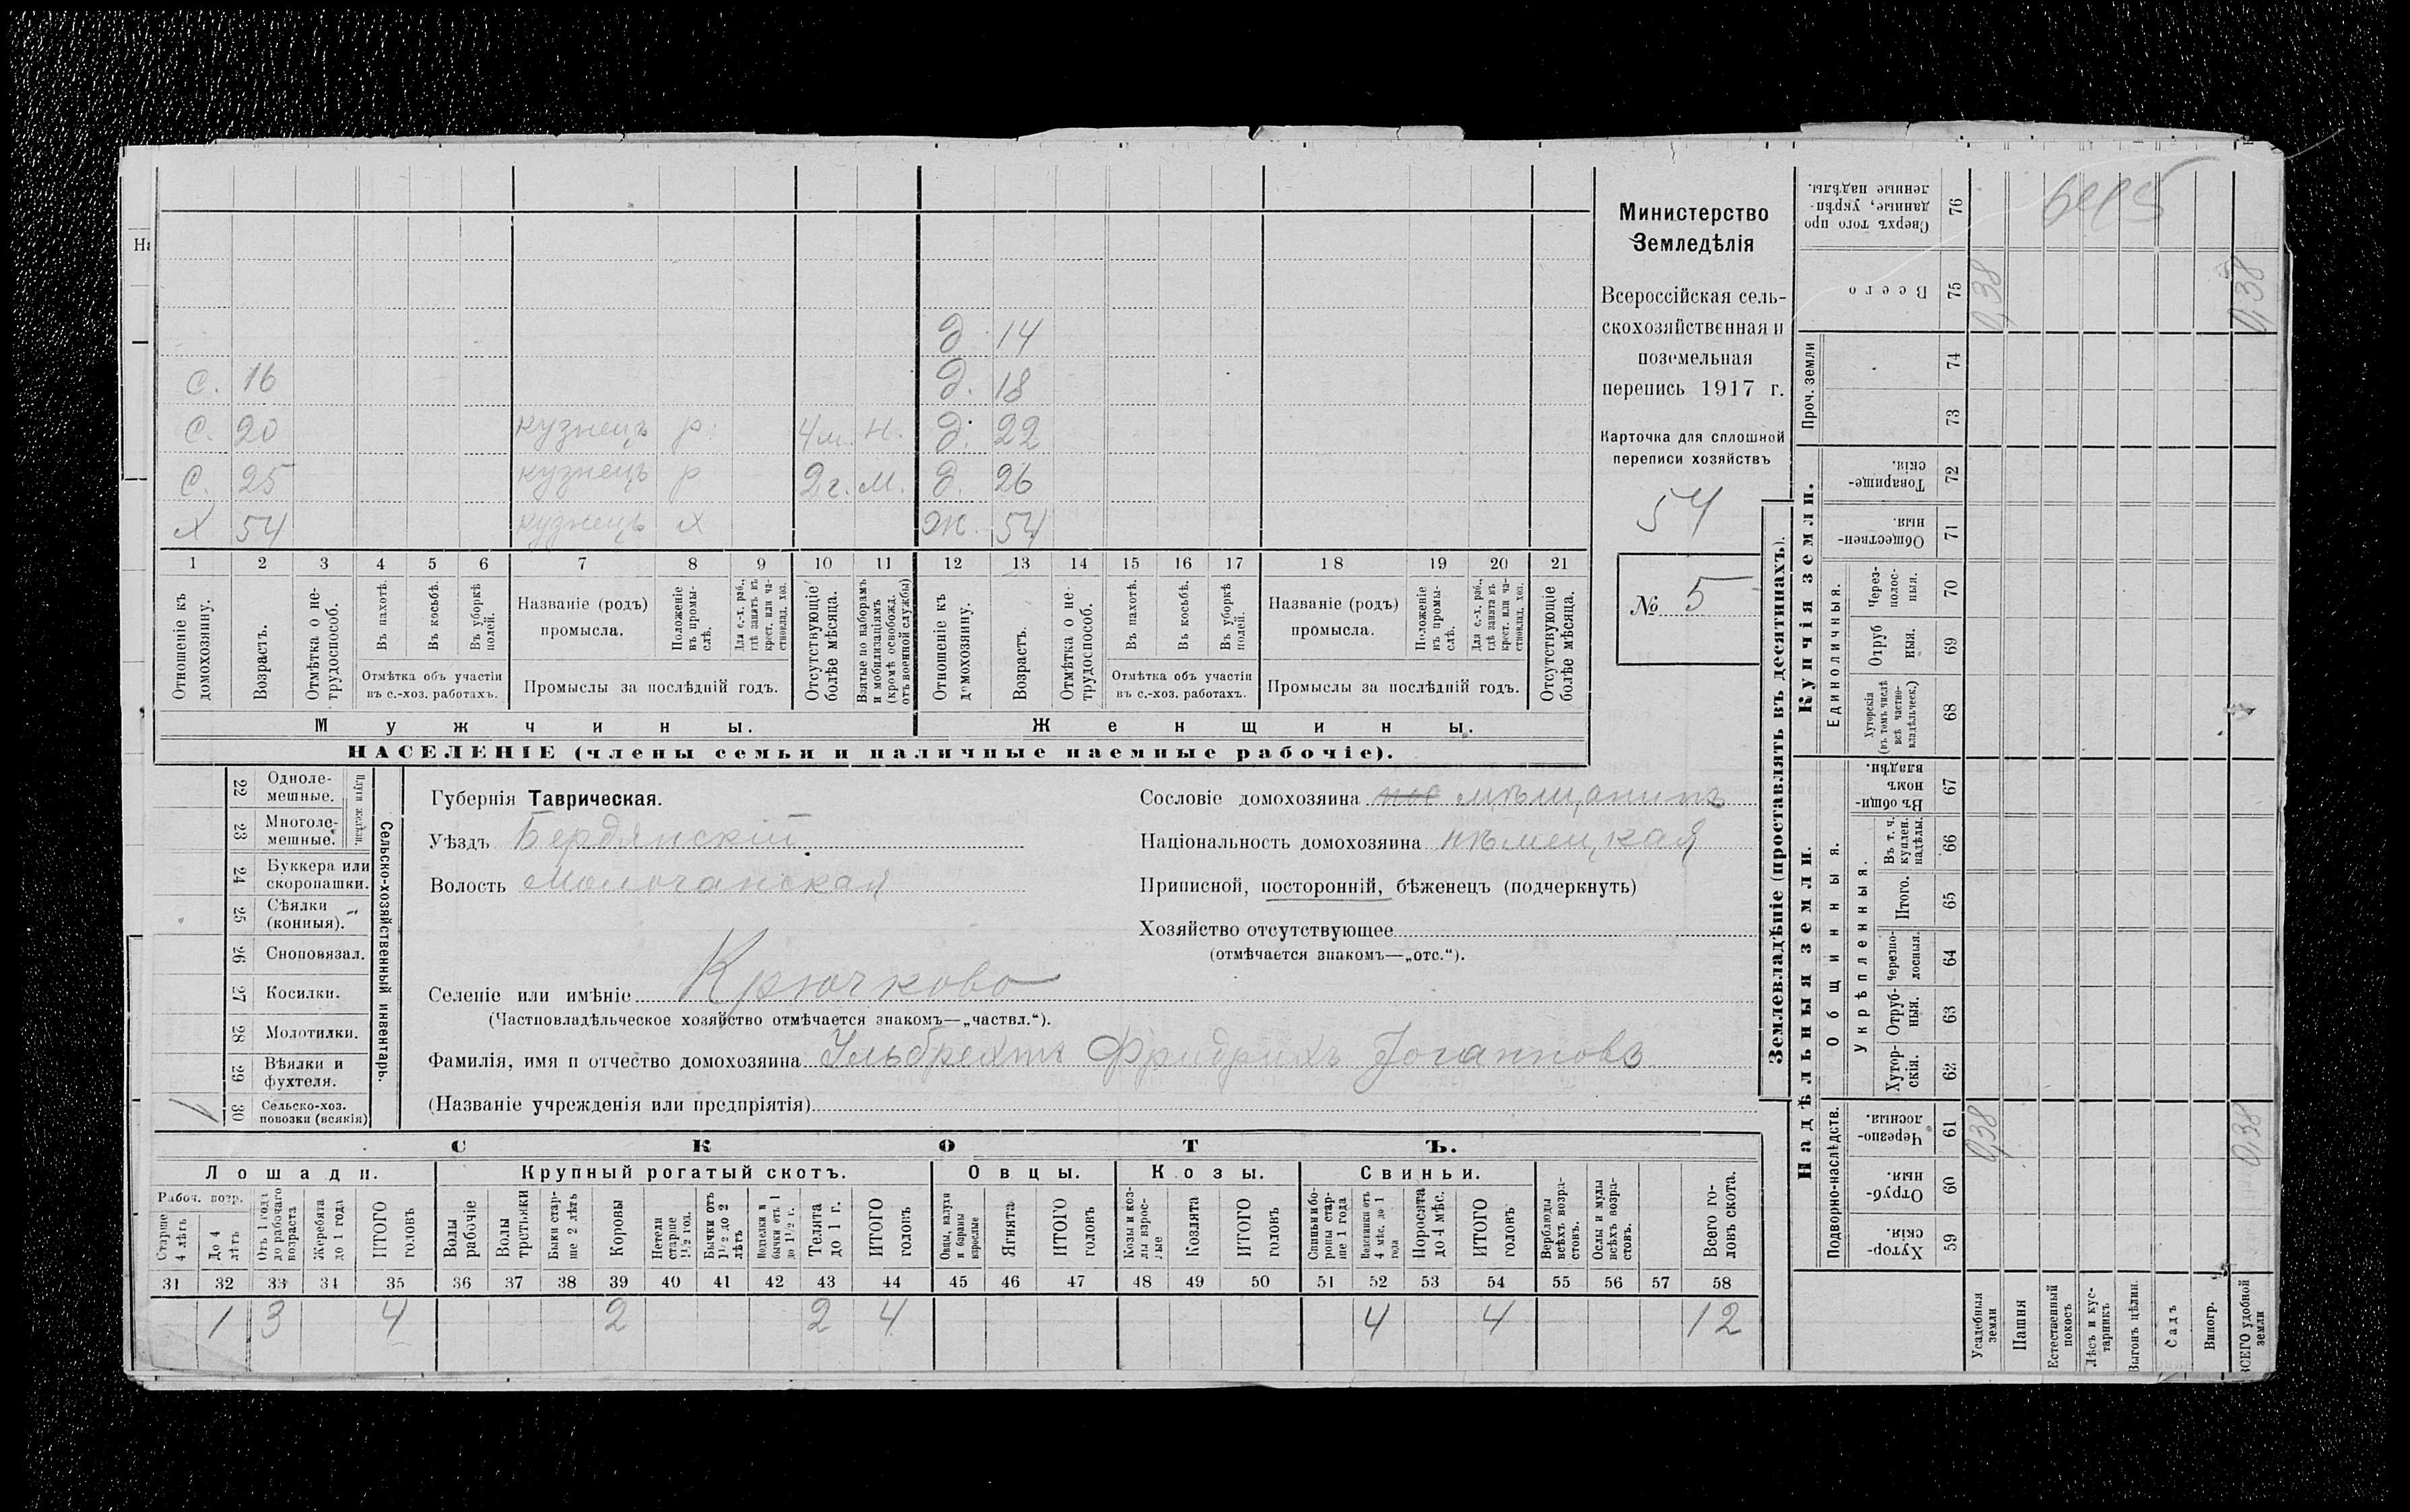 На
д. 14
с. 16 д. 18
с. 20 кузнецъ р. 4 м. н. д. 22
с. 25 кузнецъ р 2 г. м. д. 26
х 54 кузнецъ х ж. 54
1 2 3 4 5 6 7 8 9 10 11 12 13 14 15 16 17 18 19 20 21
Отношеніе къ домохозяину.
Возрастъ.
Отмѣтка о не-трудоспособ.
Въ пахотѣ.
Въ косьбѣ.
Въ уборкѣ полей.
Отмѣтка объ участіи
въ с.-хоз. работахъ.
Названіе (родъ)
промысла.
Положеніе въ промы-слѣ.
Для с.-х. раб., гдѣ занятъ въ крест. или ча-стновлад. хоз.
Промыслы за послѣдній годъ.
Отсутствующіе болѣе мѣсяца.
Взятые по наборамъ и мобилизаціямъ (кромѣ освобожд. отъ военной службы)
Отношеніе къ домохозяину.
Возрастъ.
Отмѣтка о не-трудоспособ.
Въ пахотѣ.
Въ косьбѣ.
Въ уборкѣ полей.
Отмѣтка объ участіи
въ с.-хоз. работахъ.
Названіе (родъ)
промысла.
Положеніе въ промы-слѣ.
Для с.-х. раб., гдѣ занята въ крест. или ча-стновлад. хоз.
Промыслы за послѣдній годъ.
Отсутствующіе болѣе мѣсяца.
Мужчины. Женщины.
НАСЕЛЕНІЕ (члены семьи и наличные наемные рабочіе).
Министерство
Земледѣлія
Всероссійская сель-
скохозяйственная и
поземельная
перепись 1917 г.
Карточка для сплошной
переписи хозяйствъ
54
№ 5
22 Одноле-мешные.
23 Многоле-мешные.
Плуги желѣзн.
24 Буккера или скоропашки.
25 Сѣялки (конныя).
26 Сноповязал.
27 Косилки.
28 Молотилки.
29 Вѣялки и фухтеля.
30 Сельско-хоз. повозки (всякія) 1
Сельско-хозяйственный инвентарь.
Губернія Таврическая.
Уѣздъ Бердянскій
Волость Молочанская
Сословіе домохозяина мѣщанинъ
Національность домохозяина нѣмецкая
Приписной, посторонній, бѣженецъ (подчеркнуть)
Хозяйство отсутствующее
(отмѣчается знакомъ—„отс.“).
Селеніе или имѣніе Крючково
(Частновладѣльческое хозяйство отмѣчается знакомъ—„частвл.“).
Фамилія, имя и отчество домохозяина Ульбрехтъ Фридрихъ Іоганновъ
(Названіе учрежденія или предпріятія)
СКОТЪ.
Лошади. Крупный рогатый скотъ. Овцы. Козы. Свиньи.
Рабоч. возр.
Старше 4 лѣтъ
До 4 лѣтъ
Отъ 1 года до рабочаго возраста
Жеребята до 1 года
ИТОГО головъ
Волы рабочіе
Волы третьяки
Быки стар-ше 2 лѣтъ
Коровы
Нетели старше 1½ год.
Бычки отъ 1½ до 2 лѣтъ
Подтелки и бычки отъ 1 до 1½ г.
Телята до 1 г.
ИТОГО головъ
Овцы, валухи и бараны взрослые
Ягнята
ИТОГО головъ
Козы и коз-лы взрос-лые
Козлята
ИТОГО головъ
Свиньи и бо-ровы стар-ше 1 года
Подсвинки отъ 4 мѣс. до 1 года
Поросята до 4 мѣс.
ИТОГО головъ
Верблюды всѣхъ возра-стовъ.
Ослы и мулы всѣхъ возра-стовъ.
Всего го-ловъ скота.
31 32 33 34 35 36 37 38 39 40 41 42 43 44 45 46 47 48 49 50 51 52 53 54 55 56 57 58
1 3 4 2 2 4 4 4 12
Землевладѣніе (проставлять въ десятинахъ).
Надѣльныя земли. Купчія земли.
Подворно-наслѣдств. Общинныя. Единоличныя. Проч. земли
Укрѣпленныя.
Хутор-скія. 59
Отруб-ныя. 60
Черезпо-лосныя. 61
Хутор-скія. 62
Отруб-ныя. 63
Черезпо-лосныя. 64
Итого. 65
Въ т. ч. куплен. надѣлы. 66
Въ общин-номъ владѣн. 67
Хуторскія (въ томъ числѣ всѣ частно-владѣльческ.) 68
Отруб ныя. 69
Через-полос-ныя. 70
Обществен-ныя. 71
Товарище-скія. 72
73
74
Всего 75
Сверхъ того про данные, укрѣп-ленные надѣлы. 76
Усадебныя земли 0,38 0,38
Пашня
Естественный покосъ
Лѣсъ и кус-тарникъ
Выгонъ цѣлин.
Садъ
Виногр.
ВСЕГО удобной земли 0,38 0,38